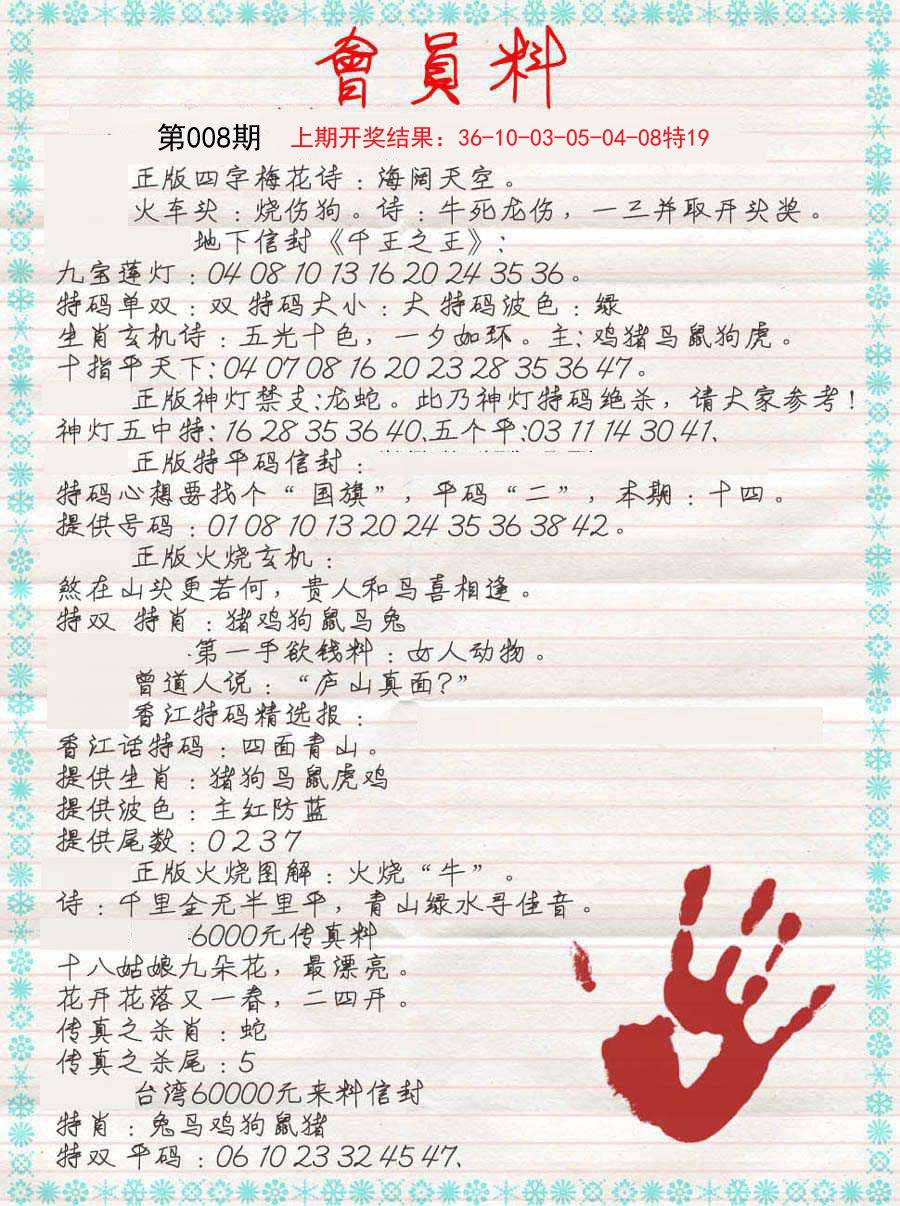 會員料
第008期 上期开奖结果：36-10-03-05-04-08特19
正版四字梅花诗：海阔天空。
火车头：烧伤狗。诗：牛死龙伤，一三并取开头奖。
地下信封《千王之王》：
九宝莲灯：04 08 10 13 16 20 24 35 36。
特码单双：双 特码大小：大 特码波色：绿
生肖玄机诗：五光十色，一夕如环。主：鸡猪马鼠狗虎。
十指平天下：04 07 08 16 20 23 28 35 36 47。
正版神灯禁支：龙蛇。此乃神灯特码绝杀，请大家参考！
神灯五中特：16 28 35 36 40、五个平：03 11 14 30 41、
正版特平码信封：
特码心想要找个“国旗”，平码“二”，本期：十四。
提供号码：01 08 10 13 20 24 35 36 38 42。
正版火烧玄机：
煞在山头更若何，贵人和马喜相逢。
特双 特肖：猪鸡狗鼠马兔
第一手欲钱料：女人动物。
曾道人说：“庐山真面？”
香江特码精选报：
香江话特码：四面青山。
提供生肖：猪狗马鼠虎鸡
提供波色：主红防蓝
提供尾数：0 2 3 7
正版火烧图解：火烧“牛”。
诗：千里金无半里平，青山绿水寻佳音。
6000元传真料
十八姑娘九朵花，最漂亮。
花开花落又一春，二四开。
传真之杀肖：蛇
传真之杀尾：5
台湾60000元来料信封
特肖：兔马鸡狗鼠猪
特双 平码：06 10 23 32 45 47、